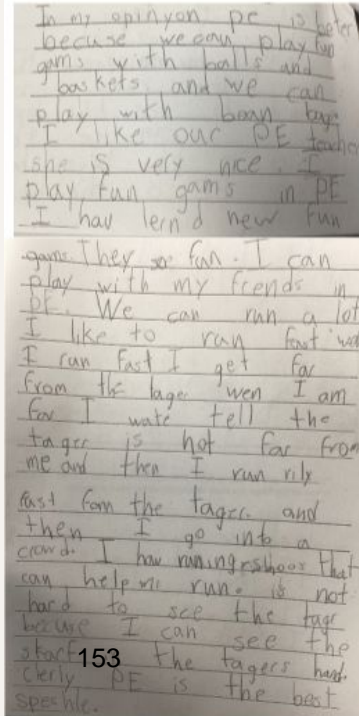 In my opinyon PE is beter
becuse we can play fun
gams with balls and
baskets and we can
play with bean bags.
I like our PE teacher
she is very nice. I
play fun gams in PE
I hav lern'd new fun
gams. They so fun. I can
play with my frends in
PE. We can run a lot
I like to run fast
I run fast I get far
from the tager wen I am
far I wate tell the
tager is not far from
me and then I run rily
fast fom the tager. and
then I go into a
crowd. I hav runing shoos that
can help me run. is not
hard to see the tagr
becuse I can see the
153 the tagers hand.
Clerly PE is the best
speshle.